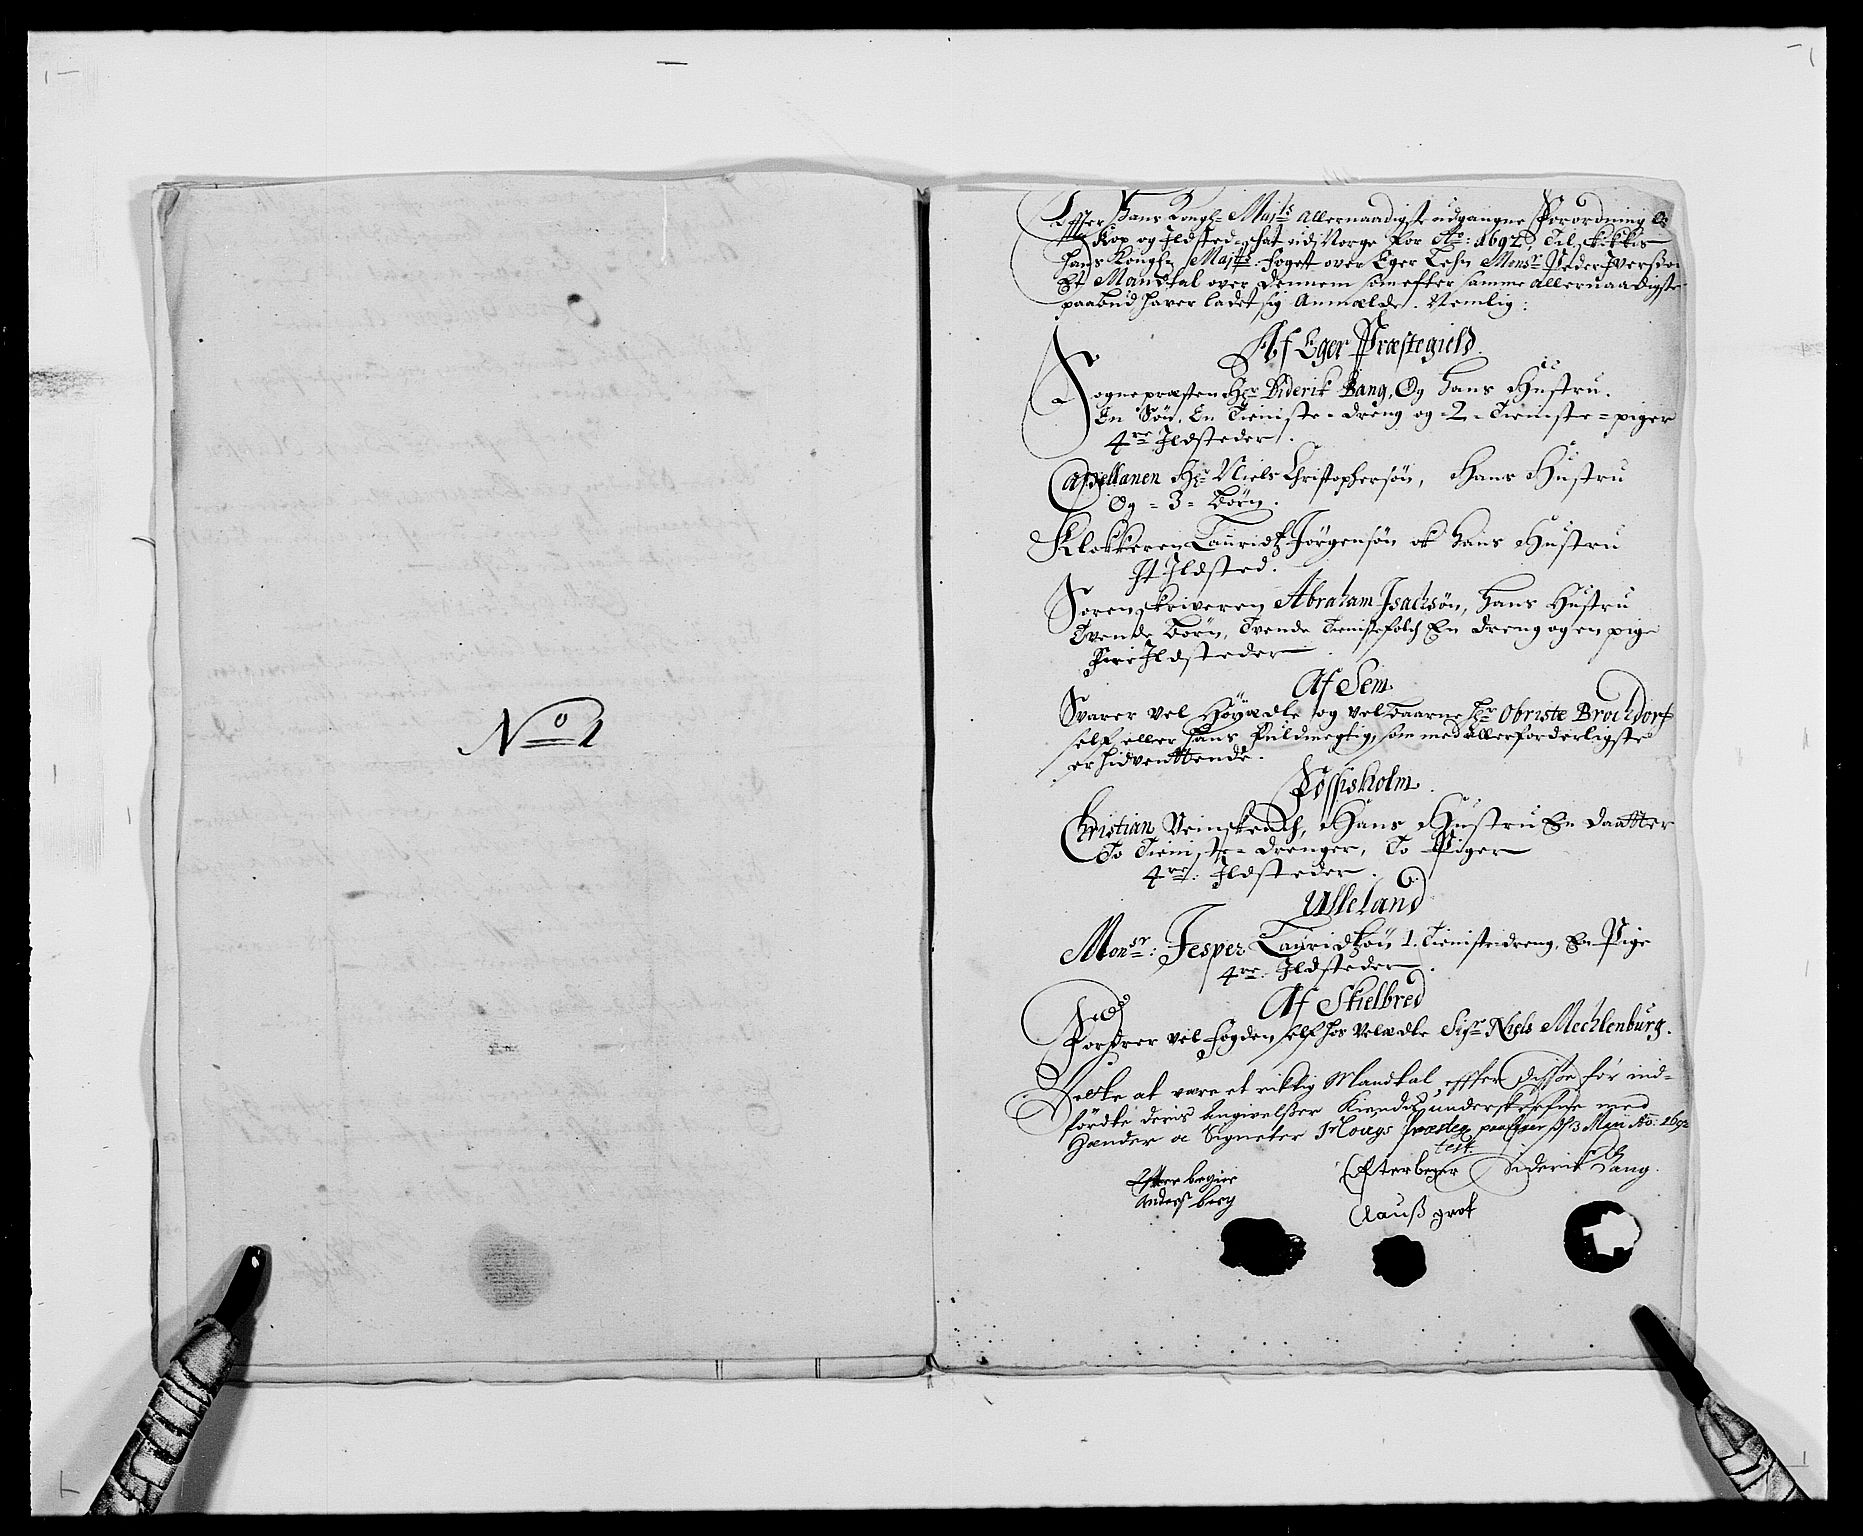 No 1
Effter Hans Kongl: Majts allernaadigste udgangne Forordning Om
Kop og Ildsteds schat udj Norge for Ao: 1692, Tilskikkis
Hans Kongln Majtts: Fogett over Eger Lehn Monsr Peder Iverssøn
Et Mandtal over dennem som efter samme allernaadigste
paabud haver ladet sig Anmælde. Nemlig:
Af Eger Præstegield
Sognepræsten Hr Diderik Bang, Og Hans Hustru.
En Søn, En Tieniste-dreng og -2- Tieniste-piger
4re Ildsteder.
Capellanen Hr Niels Christophersøn, Hans Hustru
Og - 3 - Børn.
Klokkeren Lauridtz Jørgensøn ok hans Hustru
It Ildsted.
Sorenskriveren Abraham Isachsøn, Hans Hustru
Tvende Børn, Tvende Tienistefolch En dreng og en pige
Fire Ildsteder
Af Sem
Svarer vel Høyædle og velbaarne Hr Obriste Brochdorf
self eller Hans fuldmegtig, som med allerforderligste
er hidventtende.
Fossisholm.
Christian, Hans Hustru En daatter
To Tieniste-drenger, To Piger
4re: Ildsteder.
Ulleland
Monsr: Jesper Lauridtzøn 1. Tienistedreng, En Pige
4re: Ildsteder.
Af Skielbred
Fordrer vel fogden self hos Velædle Sigr Niels Mechlenburg.
Dette at være et riktig Mandtal effter disse før ind-
førdte deris angivelsser Kiendis underskrefne med
Hænder oc Signeter Hougs præstegaard 3 Maij Ao: 1692
test.
Efter begier Diderik Bang.
Efter begier
Anders berg
Clauss grof